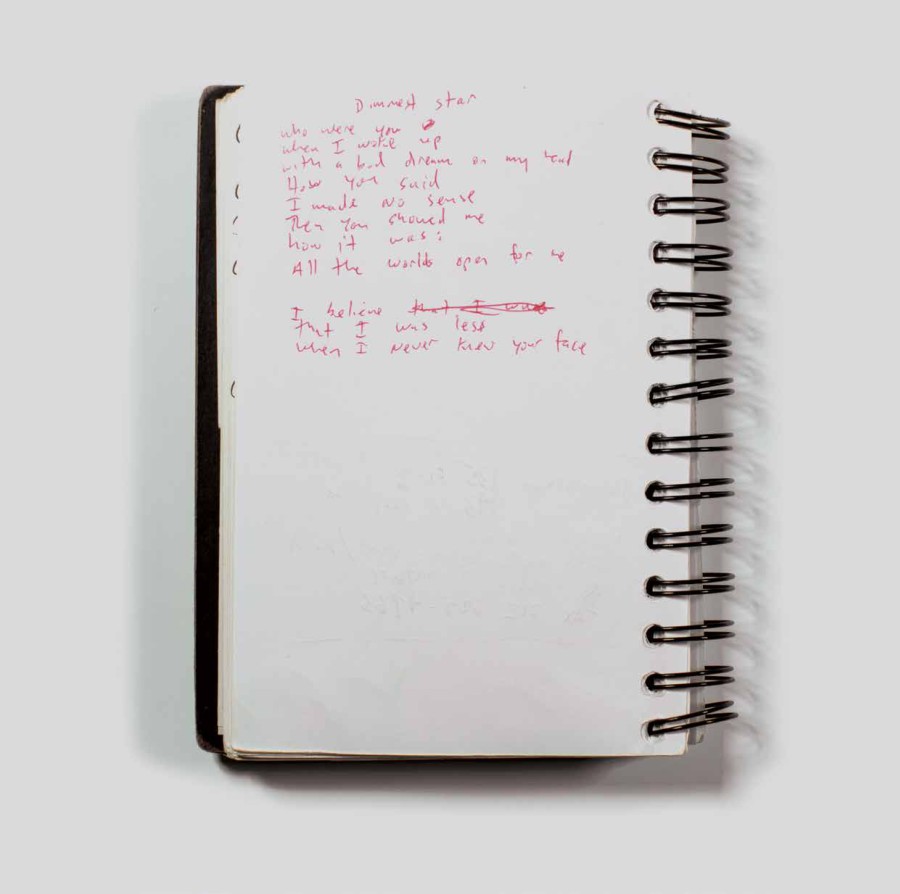 Dimmest star
who were you
when I woke up
with a bad dream on my head
How you said
I made No sense
Then you showed me
how it was:
All the worlds open for me
I believe that I was
that I was less
when I never knew your face